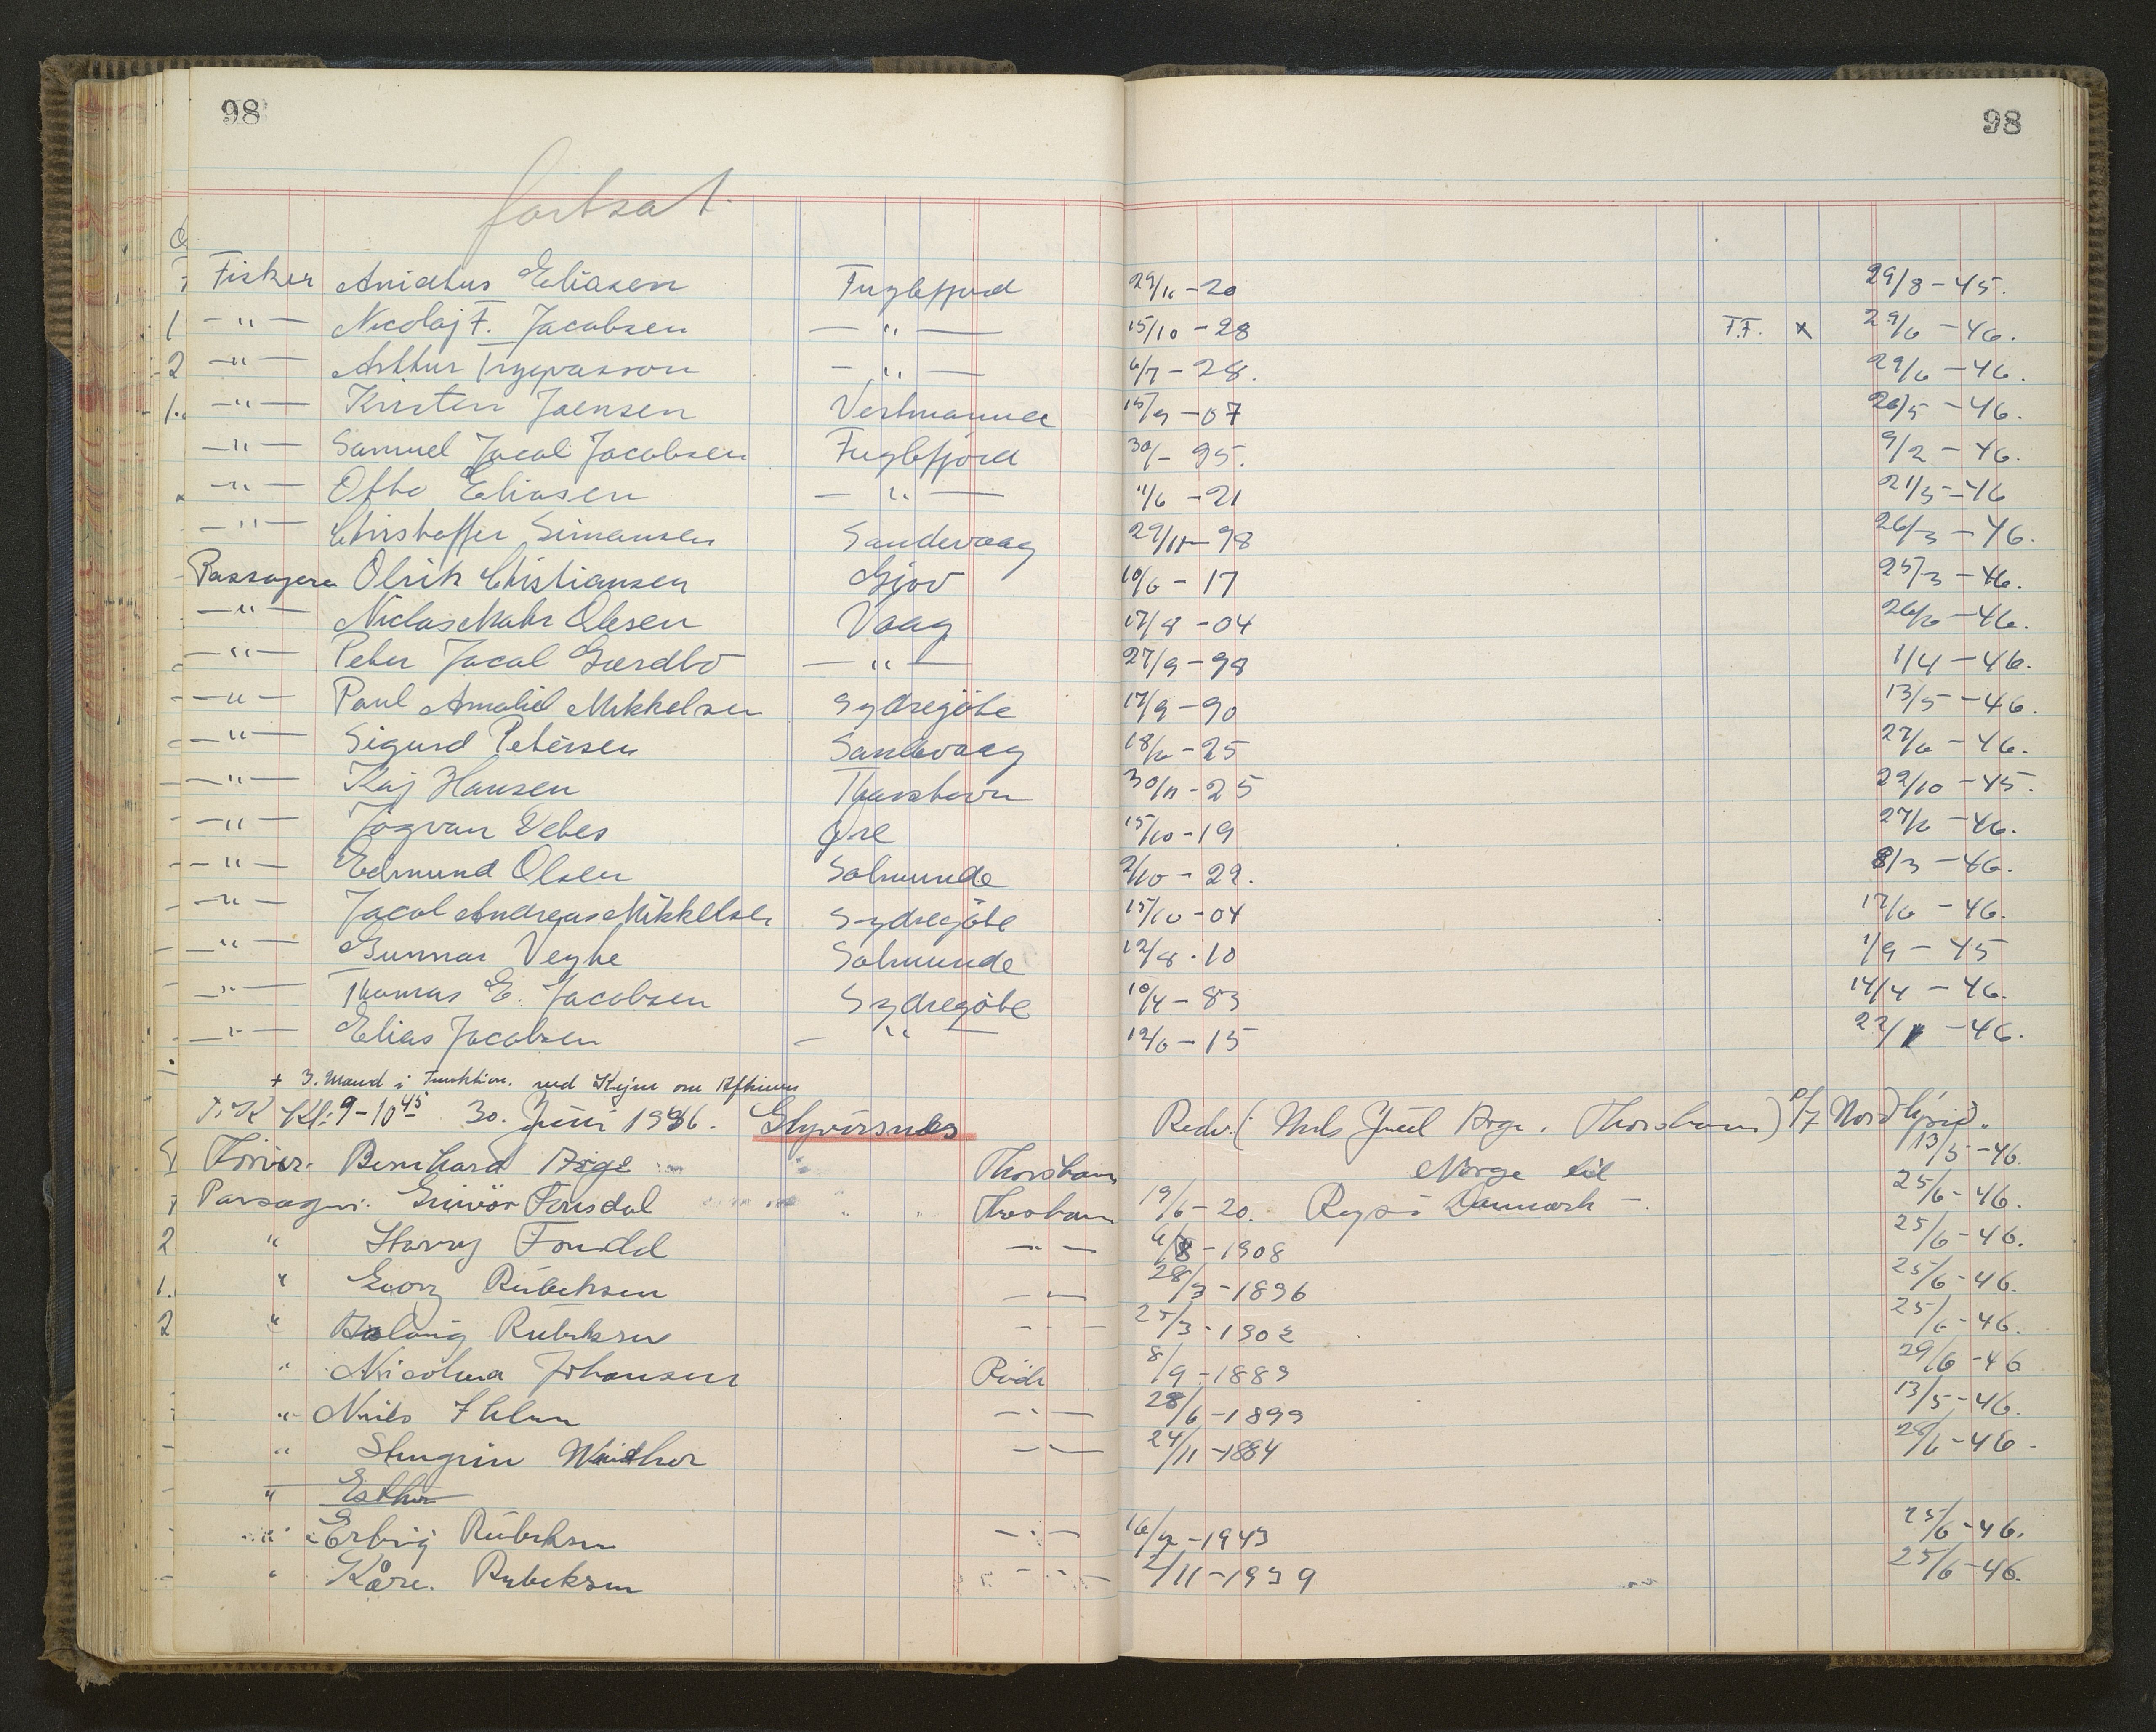 98 98
fortsat.
Fisker Anidhus Eliasen Fuglefjord 29/11 - 20 29/8 - 45.
1 - " - Nicolaj F. Jacobsen - " - 15/10 - 28 F.F. x 29/6 - 46.
2 - " - Arthur Tryggvasson - " - 6/7 - 28. 29/6 - 46.
1. - " - Kristen Joensen Vestmannia 15/9 - 07 20/5 - 46.
- " - Samuel Jacob Jacobsen Fuglefjord 30/ - 95. 9/2 - 46.
- " - Otto Eliasen - " - 11/6 - 21 21/5 - 46
- " - Christoffer Simonsen Sandevaag 29/11 - 98 26/3 - 46.
Passagere Olrik Christiansen Gjov 10/6 - 17 25/3 - 46.
- " - Niclas Mohr Olesen Vaag 17/8 - 04 26/6 - 46.
- " - Peter Jacob Gærdbo - " - 27/9 - 98 1/4 - 46.
- " - Paul Amaliel Mikkelsen Sydregöte 17/9 - 90 13/5 - 46.
- " - Sigurd Petersen Sandevaag 18/6 - 25 27/6 - 46.
- " - Kaj Hansen Thorshavn 30/11 - 25 22/10 - 45.
- " - Jógvan Debes Øre 15/10 - 19 27/6 - 46.
- " - Edmund Olsen Solmunde 2/10 - 22. 8/3 - 46.
- " - Jacob Andreas Mikkelsen Sydregöte 15/10 - 04 17/6 - 46.
- " - Gunnar Veyhe Solmunde 12/8 - 10 1/9 - 45
- " - Thomas E. Jacobsen Sydregöte 10/4 - 83 14/4 - 46.
- " - Elias Jacobsen - " - 12/6 - 15 22/1 - 46.
+ 3. Mand i Funktion. med om
T.K Kl: 9 - 10 45 30. Juni 1946. Glyvursnes Rederi (Niels Juul Arge. Thorshavn) P/F Nordlýsið.
Förer. Bernhard Arge Thorshavn 13/5 - 46.
Norge til
Passager: Gunvör Fonsdal Thorshavn 19/6 - 20. Rejse Danmark - 25/6 - 46.
2 " Harry Fonsdal - " - 6/8 - 1908 25/6 - 46.
1. " Georg Rubeksen - " - 28/3 - 1896 25/6 - 46.
2 " Aslaug Rubeksen - " - 25/3 - 1902 25/6 - 46.
" Nicolina Johansen 8/9 - 1889 29/6 - 46
" Niels - " - 28/6 - 1899 13/5 - 46.
" Winther - " - 24/11 - 1884 28/6 - 46 -
" Esther
" Rubeksen - " - 16/ - 1943 25/6 - 46.
" Kåre. Rubeksen - " - 2/11 - 1939 25/6 - 46.